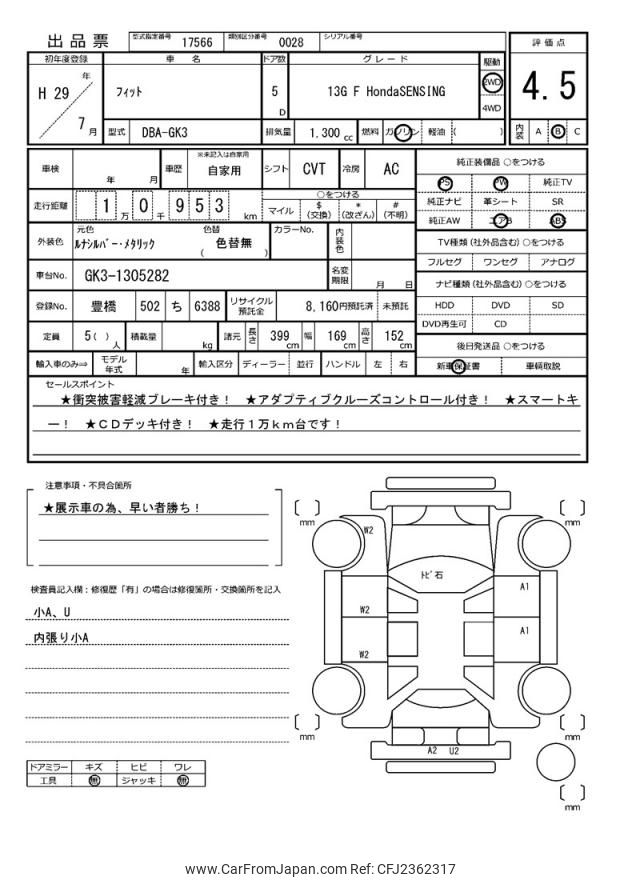 出品票 型式指定番号 17566 類別区分番号 0028 シリアル番号
評価点
4.5
内装 A B C
初年度登録 車名 ドア数 グレード 駆動
H 29 年 7 月
フィット 5 D 13G F HondaSENSING 2WD 4WD
型式 DBA-GK3 排気量 1.300 cc 燃料 ガソリン 軽油 ( )
車検 年 月 車歴 ※未記入は自家用 自家用 シフト CVT 冷房 AC
走行距離 1 万 0 千 9 5 3 km
○をつける
マイル $(交換) *(改ざん) #(不明)
外装色 元色 ルナシルバー・メタリック 色替 ( 色替無 ) カラーNo. 内装色
車台No. GK3-1305282 名変期限 月 日
登録No. 豊橋 502 ち 6388 リサイクル預託金 8,160円預託済 未預託
定員 5( ) 人 積載量 kg 諸元 長さ 399 cm 幅 169 cm 高さ 152 cm
輸入車のみ⇒ モデル年式 年 輸入区分 ディーラー 並行 ハンドル 左 右
純正装備品 ○をつける
PS PW 純正TV
純正ナビ 革シート SR
純正AW エアB ABS
TV種類(社外品含む)○をつける
フルセグ ワンセグ アナログ
ナビ種類(社外品含む)○をつける
HDD DVD SD
DVD再生可 CD
後日発送品 ○をつける
新車保証書 車輌取説
セールスポイント
★衝突被害軽減ブレーキ付き! ★アダプティブクルーズコントロール付き! ★スマートキ
ー! ★CDデッキ付き! ★走行1万km台です!
注意事項・不具合箇所
★展示車の為、早い者勝ち!
検査員記入欄:修復歴「有」の場合は修復箇所・交換箇所を記入
小A、U
内張り小A
ドアミラー キズ ヒビ ワレ
工具 無 ジャッキ 無
mm
mm
W2
トビ石
A1
W2
A1
W2
mm
mm
A2 U2
mm
www.CarFromJapan.com Ref: CFJ2362317